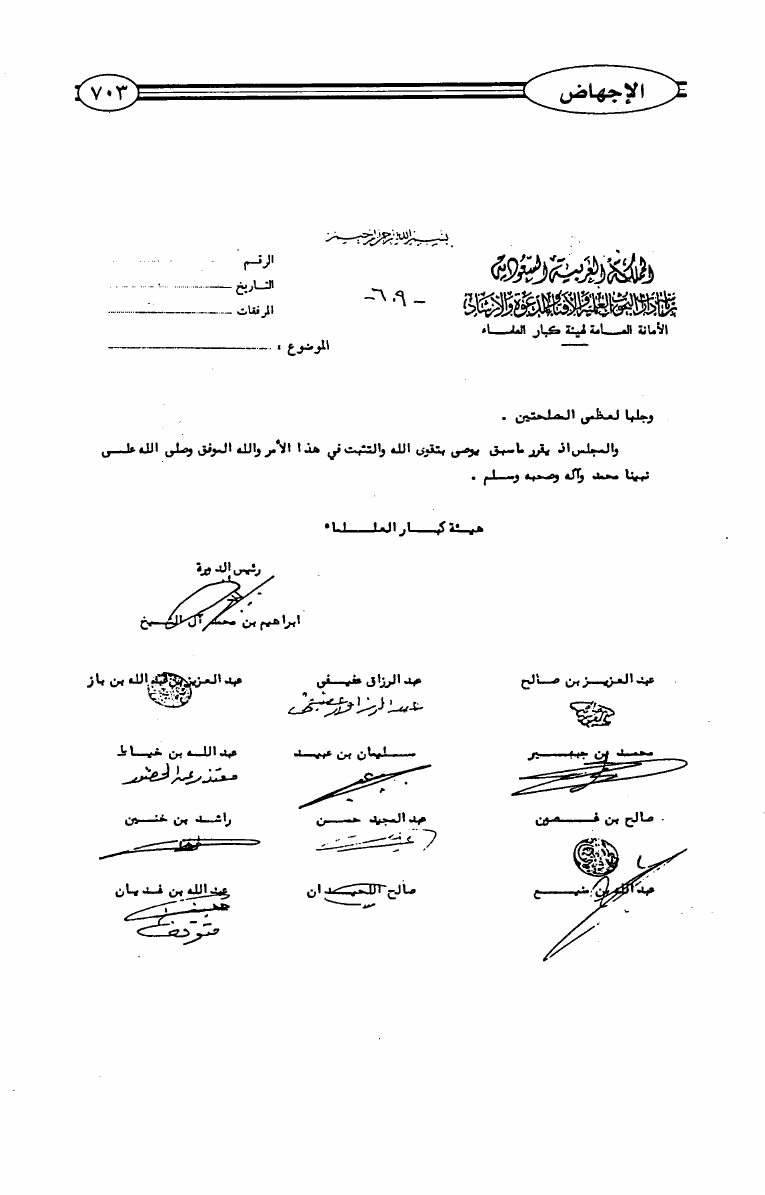 الإجهاض
٧٠٣
بسم الله الرحمن الرحيم
المملكة العربية السعودية
الأمانة العامة لهيئة كبار العلماء
- ٦٠٩ -
الرقم
التاريخ
المرفقات
الموضوع :
وجلبا لعظمى المصلحتين .
والمجلس اذ يقرر ماسبق يوصى بتقوى الله والتثبت في هذا الأمر والله الموفق وصلى الله على
نبينا محمد وآله وصحبه وسلم .
هيئة كبار العلماء
رئيس الدورة
ابراهيم بن محمد آل الشيخ
عبد العزيز بن صالح عبد الرزاق عفيفى عبد العزيز بن عبد الله بن باز
عبد الرزاق عفيفي
محمد بن جبير سليمان بن عبيد عبد الله بن خياط
معتذر عن الحضور
صالح بن غصون عبد المجيد حسن راشد بن خنين
عبد الله بن منيع صالح اللحيدان عبد الله بن غديان
متوقف